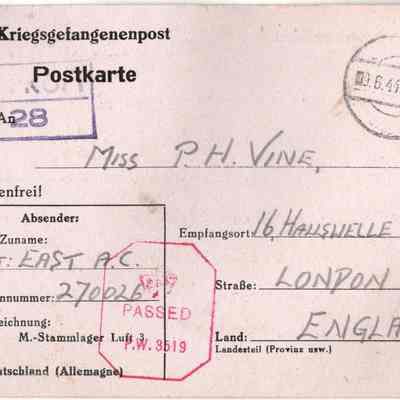 Kriegsgefangenenpost
Postkarte
9.6.4
An
28
MISS P.H. VINE,
enfrei!
Absender:
Zuname:
EAST A.C.
nnummer: 270026
eichnung:
M.-Stammlager Luft 3
eutschland (Allemagne)
PASSED
P.W. 3519
Empfangsort: 16, HAUSWELLE
Straße: LONDON
ENGLA
Land:
Landesteil (Provinz usw.)